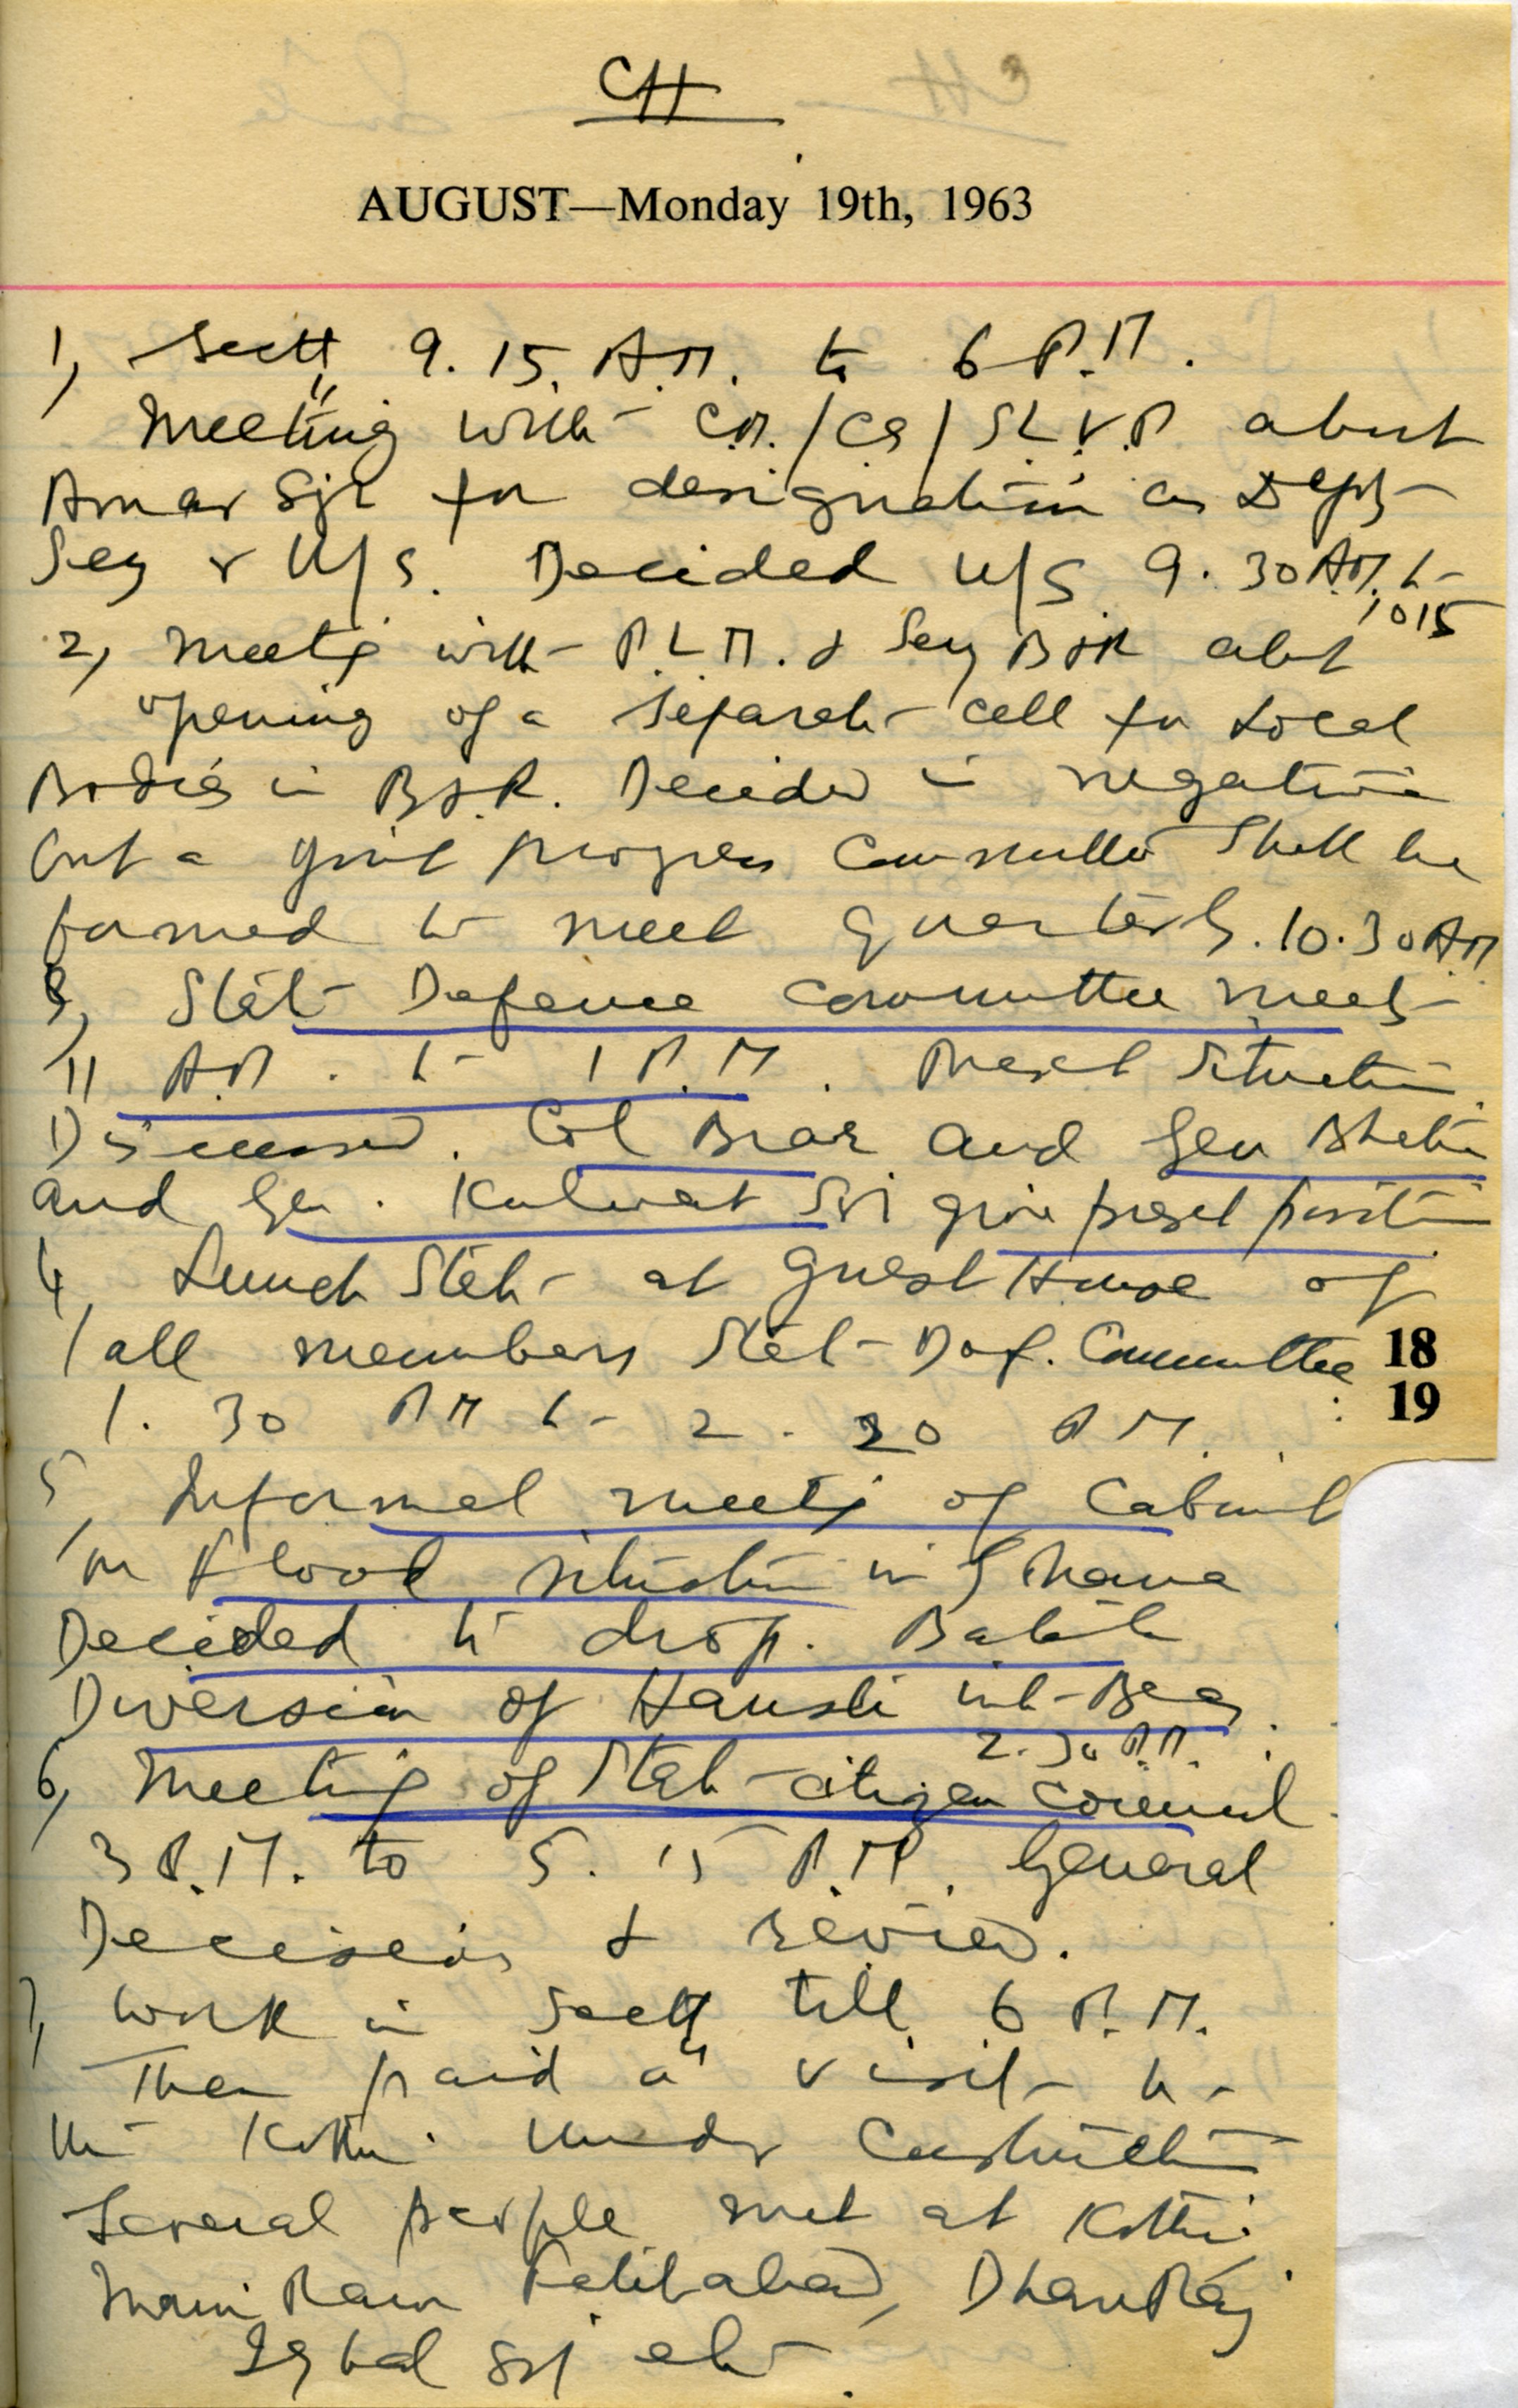 CH
AUGUST—Monday 19th, 1963
1, Sectt 9.15. A.M. to 6 P.M.
Meeting with C.M./CS/ about
Amar for designation as Depty
Secy & U/S. Decided U/S 9.30 A.M. to
1015
2, Meeting with P.L.M. & Secy B&R abt
opening of a separate cell for Local
Bodies in B&R. Decided in negative
but a joint progress Committee shall be
formed to meet quarterly. 10.30 AM
3, State Defence Committee meets
11 A.M. to 1 P.M. Present Situation
Discussed. Col Brar and Gen
and Gen. Kulwat give present position
4, Lunch State at Guest House of
all members State Def. Committee
18
1.30 PM to 2.20 P.M.
19
5, Informal meeting of Cabinet
on Flood situation in
Decided to drop.
Diversion of Hansli into Beas.
2.30 P.M.
6, Meeting of State citizen Council
3 P.M. to 5.15 P.M. General
Decisions & review.
7, Work in Sectt till 6 P.M.
Then paid a visit to
the Kothi under Construction
Several people met at Kothi
Mani Ram Fatehabad, Dhan Raj
Iqbal etc.